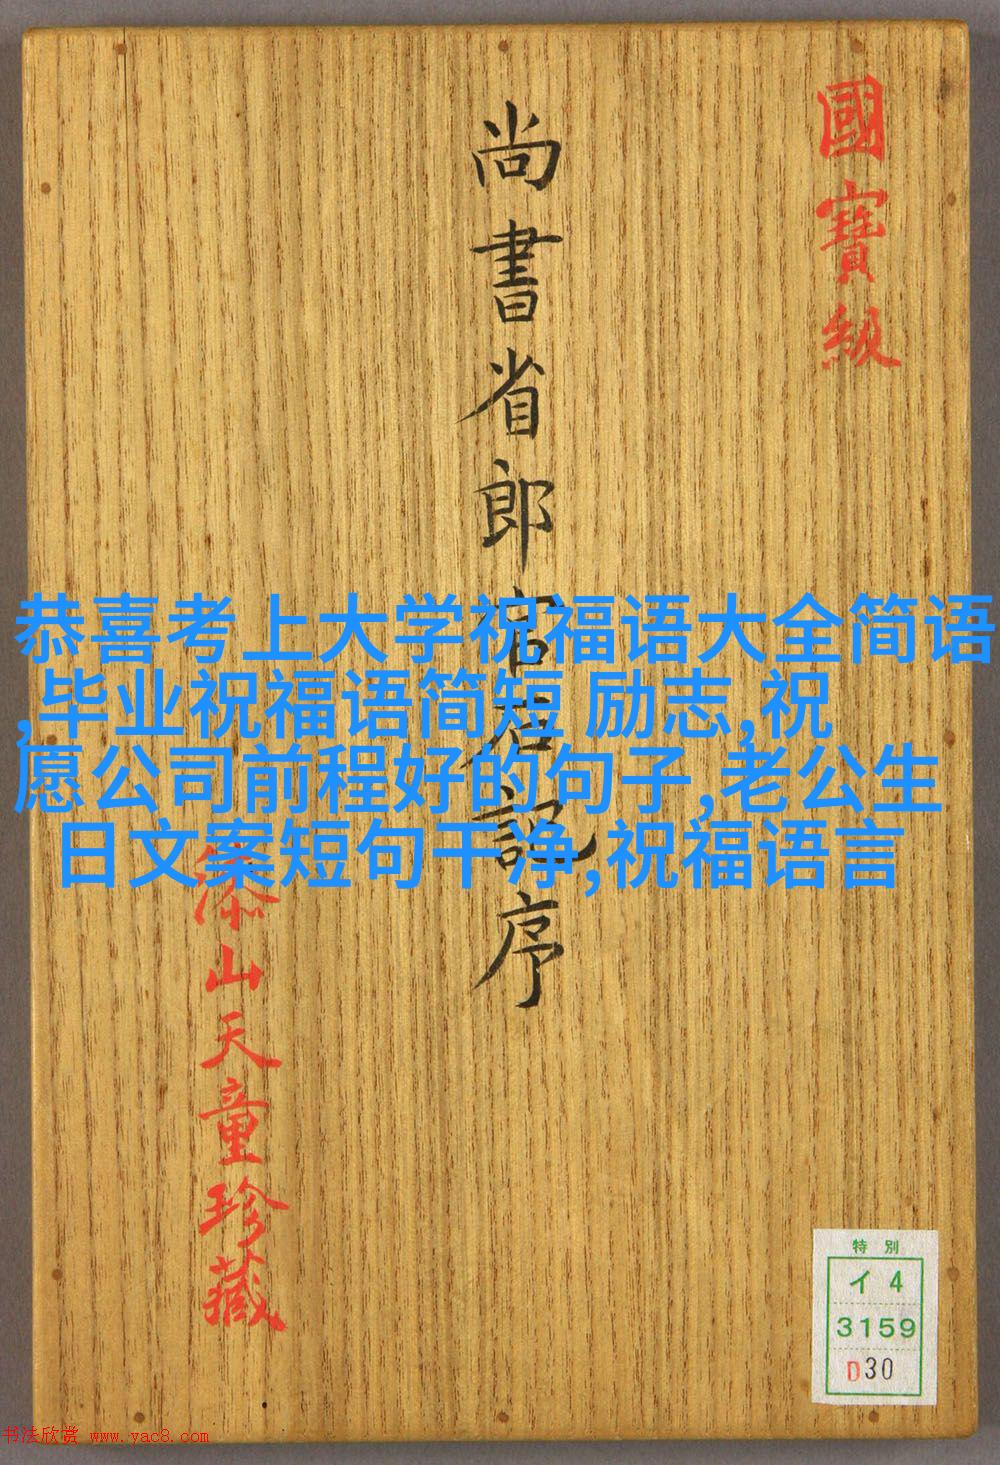 國寶級
尚書省郎官石記序
恭喜考上大学祝福语大全简语
,毕业祝福语简短 励志,祝
愿公司前程好的句子,老公生
日文案短句干净,祝福语言
山天童珍藏
特別
イ4
3159
D30
书法欣赏 www.yac8.com